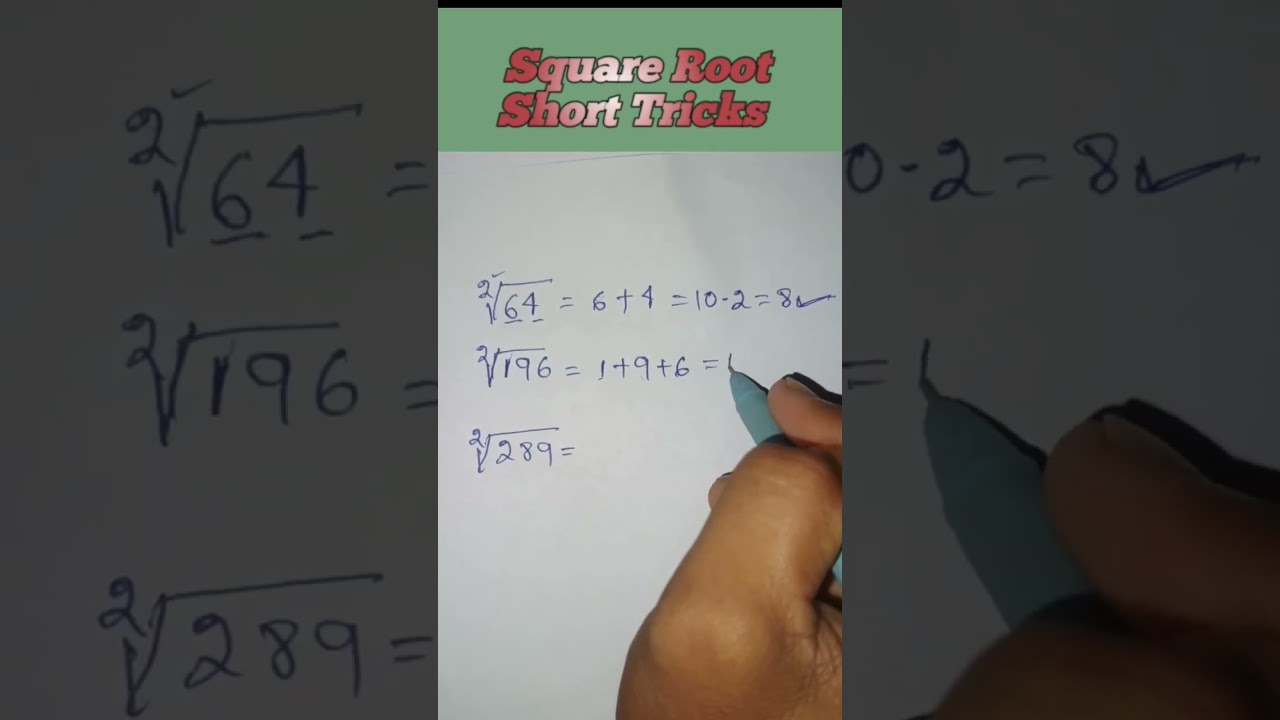 Square Root
Short Tricks
²√64 = 6 + 4 = 10 - 2 = 8 ✓
²√196 = 1 + 9 + 6 = 1
²√289 =